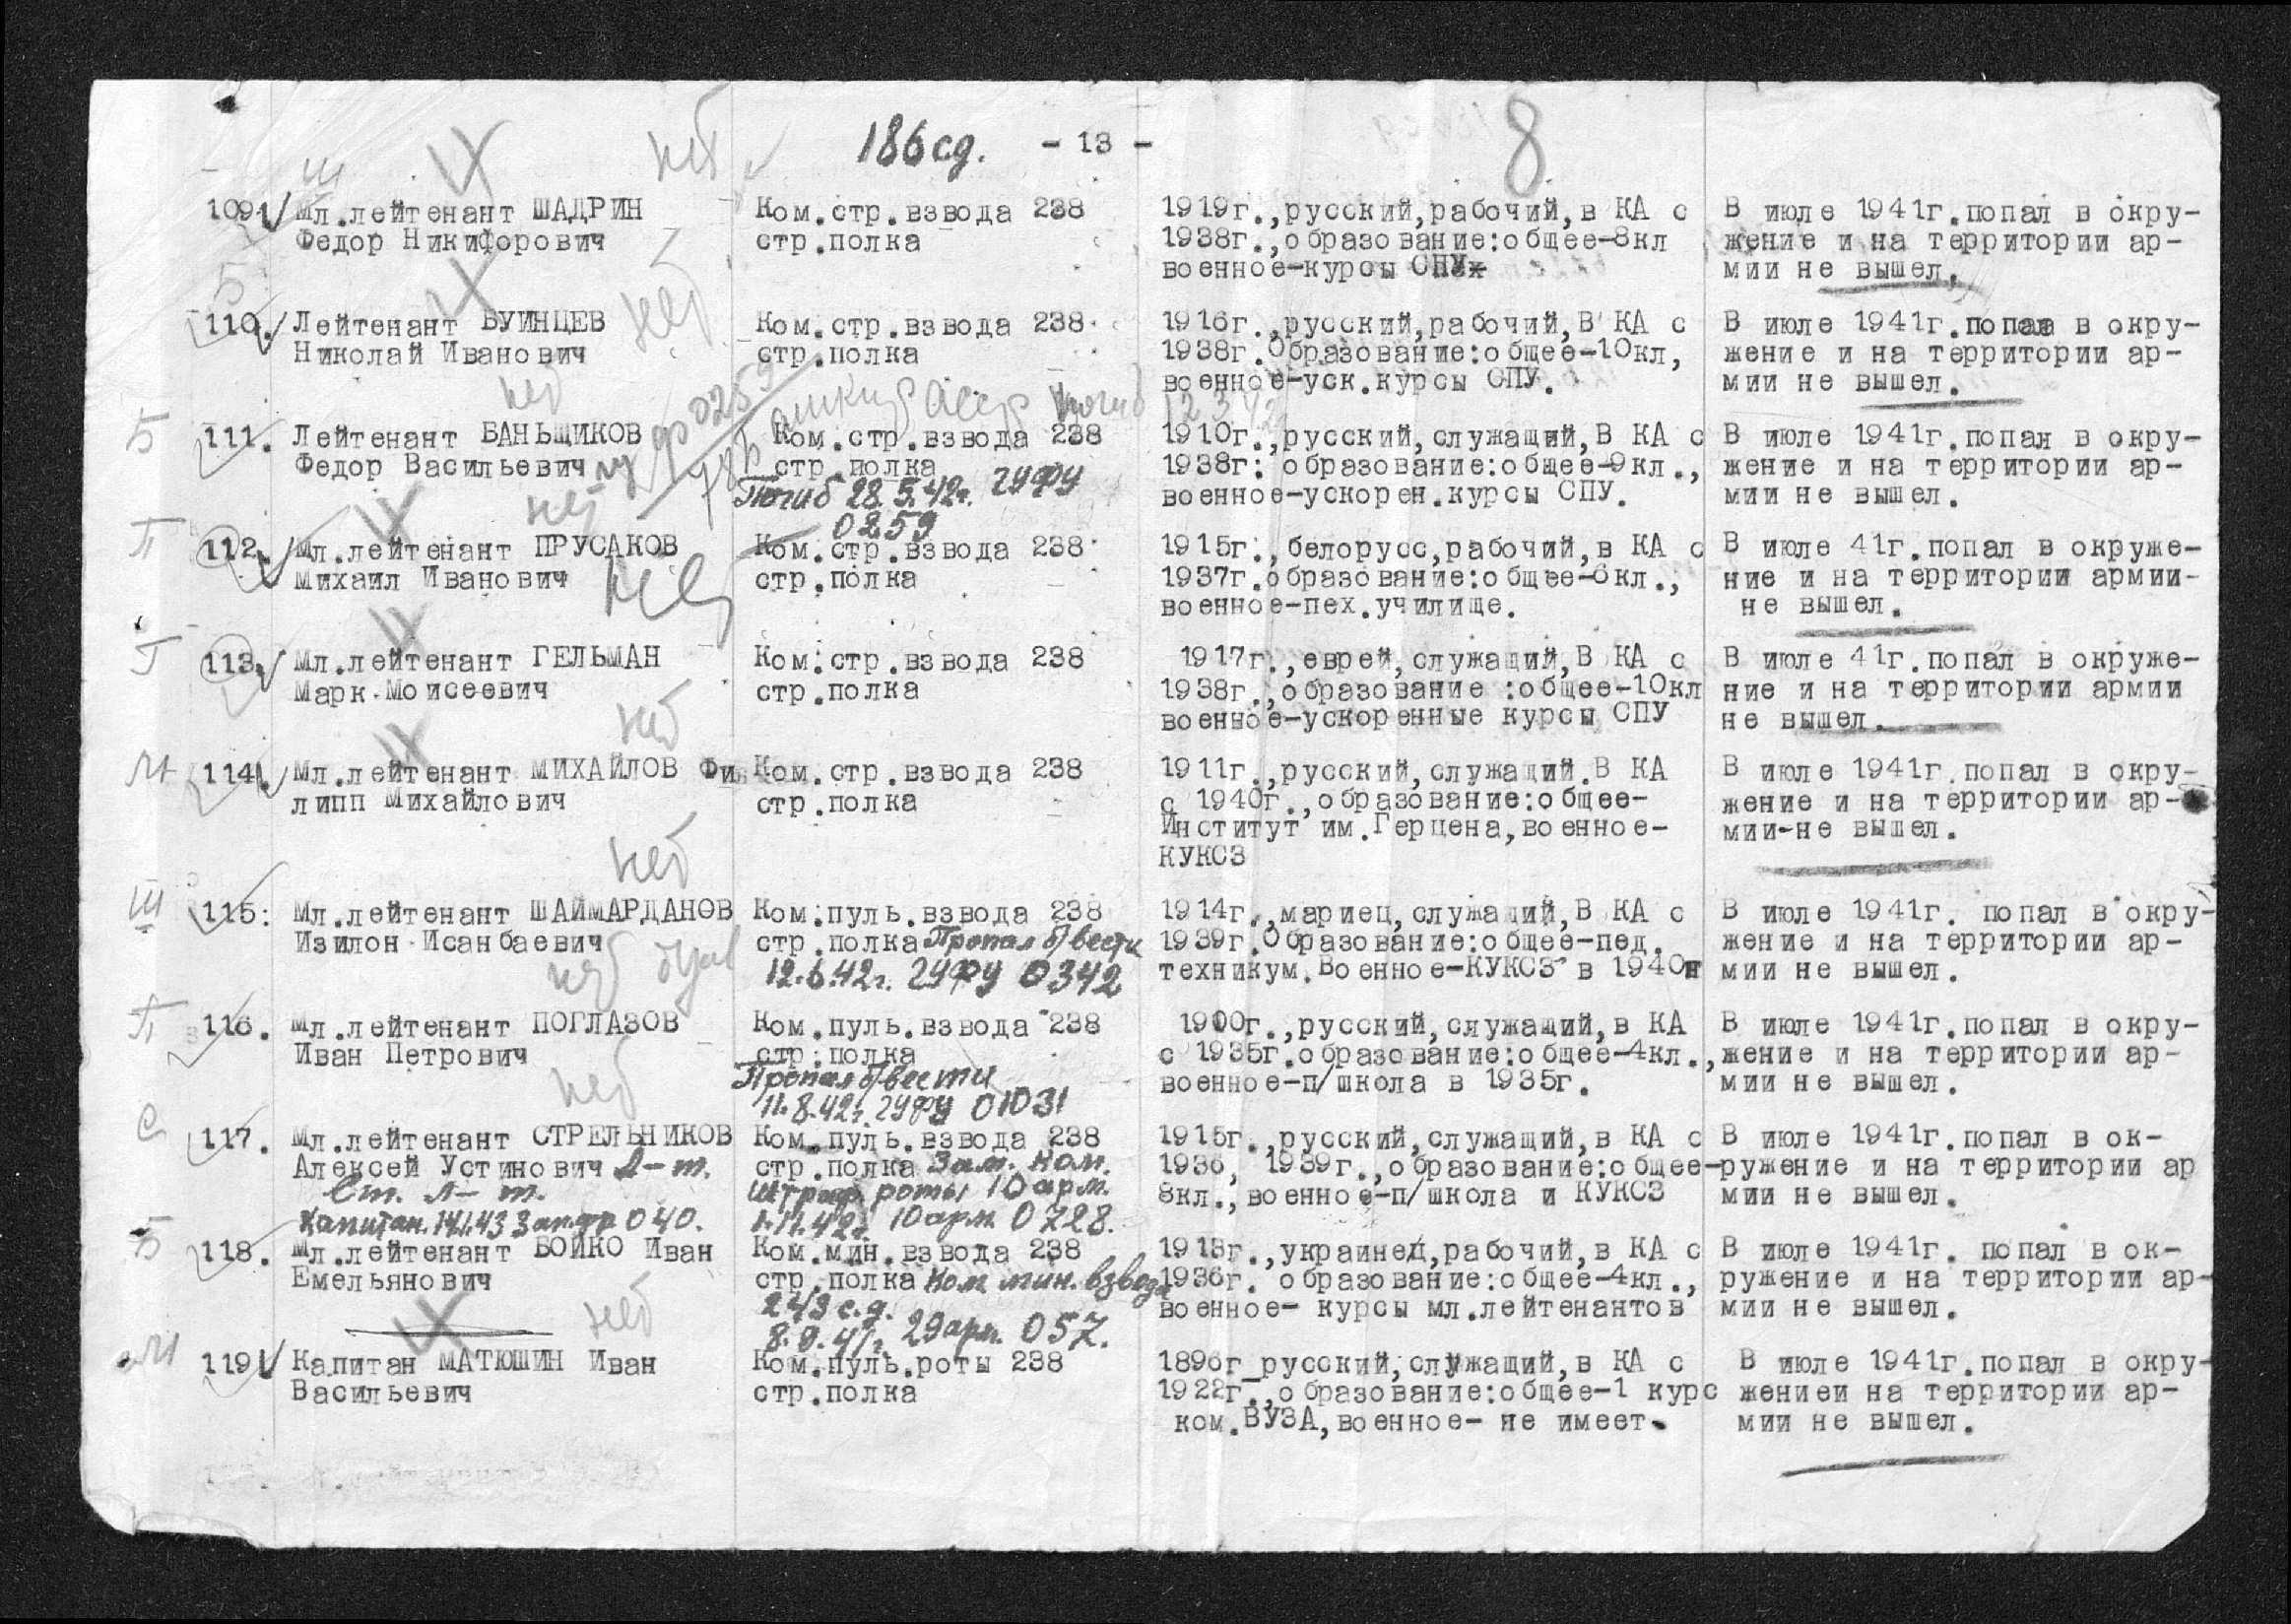 186 сд. - 13 - 8
нет
Ш
109. Мл.лейтенант ШАДРИН Ком.стр.взвода 238 1919г.,русский,рабочий,в КА с В июле 1941г.попал в окру-
Федор Никифорович стр.полка 1938г.,образование:общее-8кл жение и на территории ар-
военное-курсы СПУ мии не вышел.
Б
нет
110. Лейтенант БУИНЦЕВ Ком.стр.взвода 238 1916г.,русский,рабочий,В КА с В июле 1941г.попал в окру-
Николай Иванович стр.полка 1938г.Образование:общее-10кл, жение и на территории ар-
военное-уск.курсы СПУ. мии не вышел.
нет
Б 111. Лейтенант БАНЬЩИКОВ Ком.стр.взвода 238 1910г.,русский,служащий,В КА с В июле 1941г.попал в окру-
Федор Васильевич стр.полка 1938г. образование:общее-9кл., жение и на территории ар-
Погиб 28.5.42г. ГУФУ военное-ускорен.курсы СПУ. мии не вышел.
0259
нет
П 112. Мл.лейтенант ПРУСАКОВ Ком.стр.взвода 238 1915г.,белорусс,рабочий,в КА с В июле 41г.попал в окруже-
Михаил Иванович стр.полка 1937г.образование:общее-6кл., ние и на территории армии-
нет военное-пех.училище. не вышел.
Г 113. Мл.лейтенант ГЕЛЬМАН Ком.стр.взвода 238 1917г.,еврей,служащий,В КА с В июле 41г.попал в окруже-
Марк Моисеевич стр.полка 1938г.,образование :общее-10кл ние и на территории армии
военное-ускоренные курсы СПУ не вышел.
нет
М 114. Мл.лейтенант МИХАЙЛОВ Фи- Ком.стр.взвода 238 1911г.,русский,служащий.В КА В июле 1941г.попал в окру-
липп Михайлович стр.полка с 1940г.,образование:общее- жение и на территории ар-
Институт им.Герцена,военное- мии-не вышел.
КУКСЗ
нет
Ш 115. Мл.лейтенант ШАЙМАРДАНОВ Ком.пуль.взвода 238 1914г.,мариец,служащий,В КА с В июле 1941г. попал в окру-
Изилон Исанбаевич стр.полка Пропал б/вести 1939г.Образование:общее-пед. жение и на территории ар-
12.6.42г. ГУФУ 0342 техникум.Военное-КУКСЗ в 1940г мии не вышел.
нет
П 116. Мл.лейтенант ПОГЛАЗОВ Ком.пуль.взвода 238 1900г.,русский,служащий,в КА В июле 1941г.попал в окру-
Иван Петрович стр.полка с 1935г.образование:общее-4кл., жение и на территории ар-
Пропал б/вести военное-п/школа в 1935г. мии не вышел.
нет 11.8.42г. ГУФУ 01031
С 117. Мл.лейтенант СТРЕЛЬНИКОВ Ком.пуль.взвода 238 1915г.,русский,служащий,в КА с В июле 1941г.попал в ок-
Алексей Устинович Л-т. стр.полка Зам. ком. 1936, 1939г.,образование:общее- ружение и на территории ар
Ст. л-т. штраф. роты 10 арм. 8кл.,военное-п/школа и КУКСЗ мии не вышел.
Капитан. 14.1.43 Зап.фр 040. 1.11.42г. 10 арм. 0728.
Б 118. Мл.лейтенант БОЙКО Иван Ком.мин.взвода 238 1913г.,украинец,рабочий,в КА с В июле 1941г. попал в ок-
Емельянович стр.полка Ком. мин. взвода 1936г. образование:общее-4кл., ружение и на территории ар-
243 с.д. военное- курсы мл.лейтенантов мии не вышел.
нет 8.9.41г. 29 арм. 057.
М 119. Капитан МАТЮШИН Иван Ком.пуль.роты 238 1896г русский,служащий,в КА с В июле 1941г.попал в окру-
Васильевич стр.полка 1922г.,образование:общее-1 курс жениеи на территории ар-
ком.ВУЗА,военное- не имеет. мии не вышел.